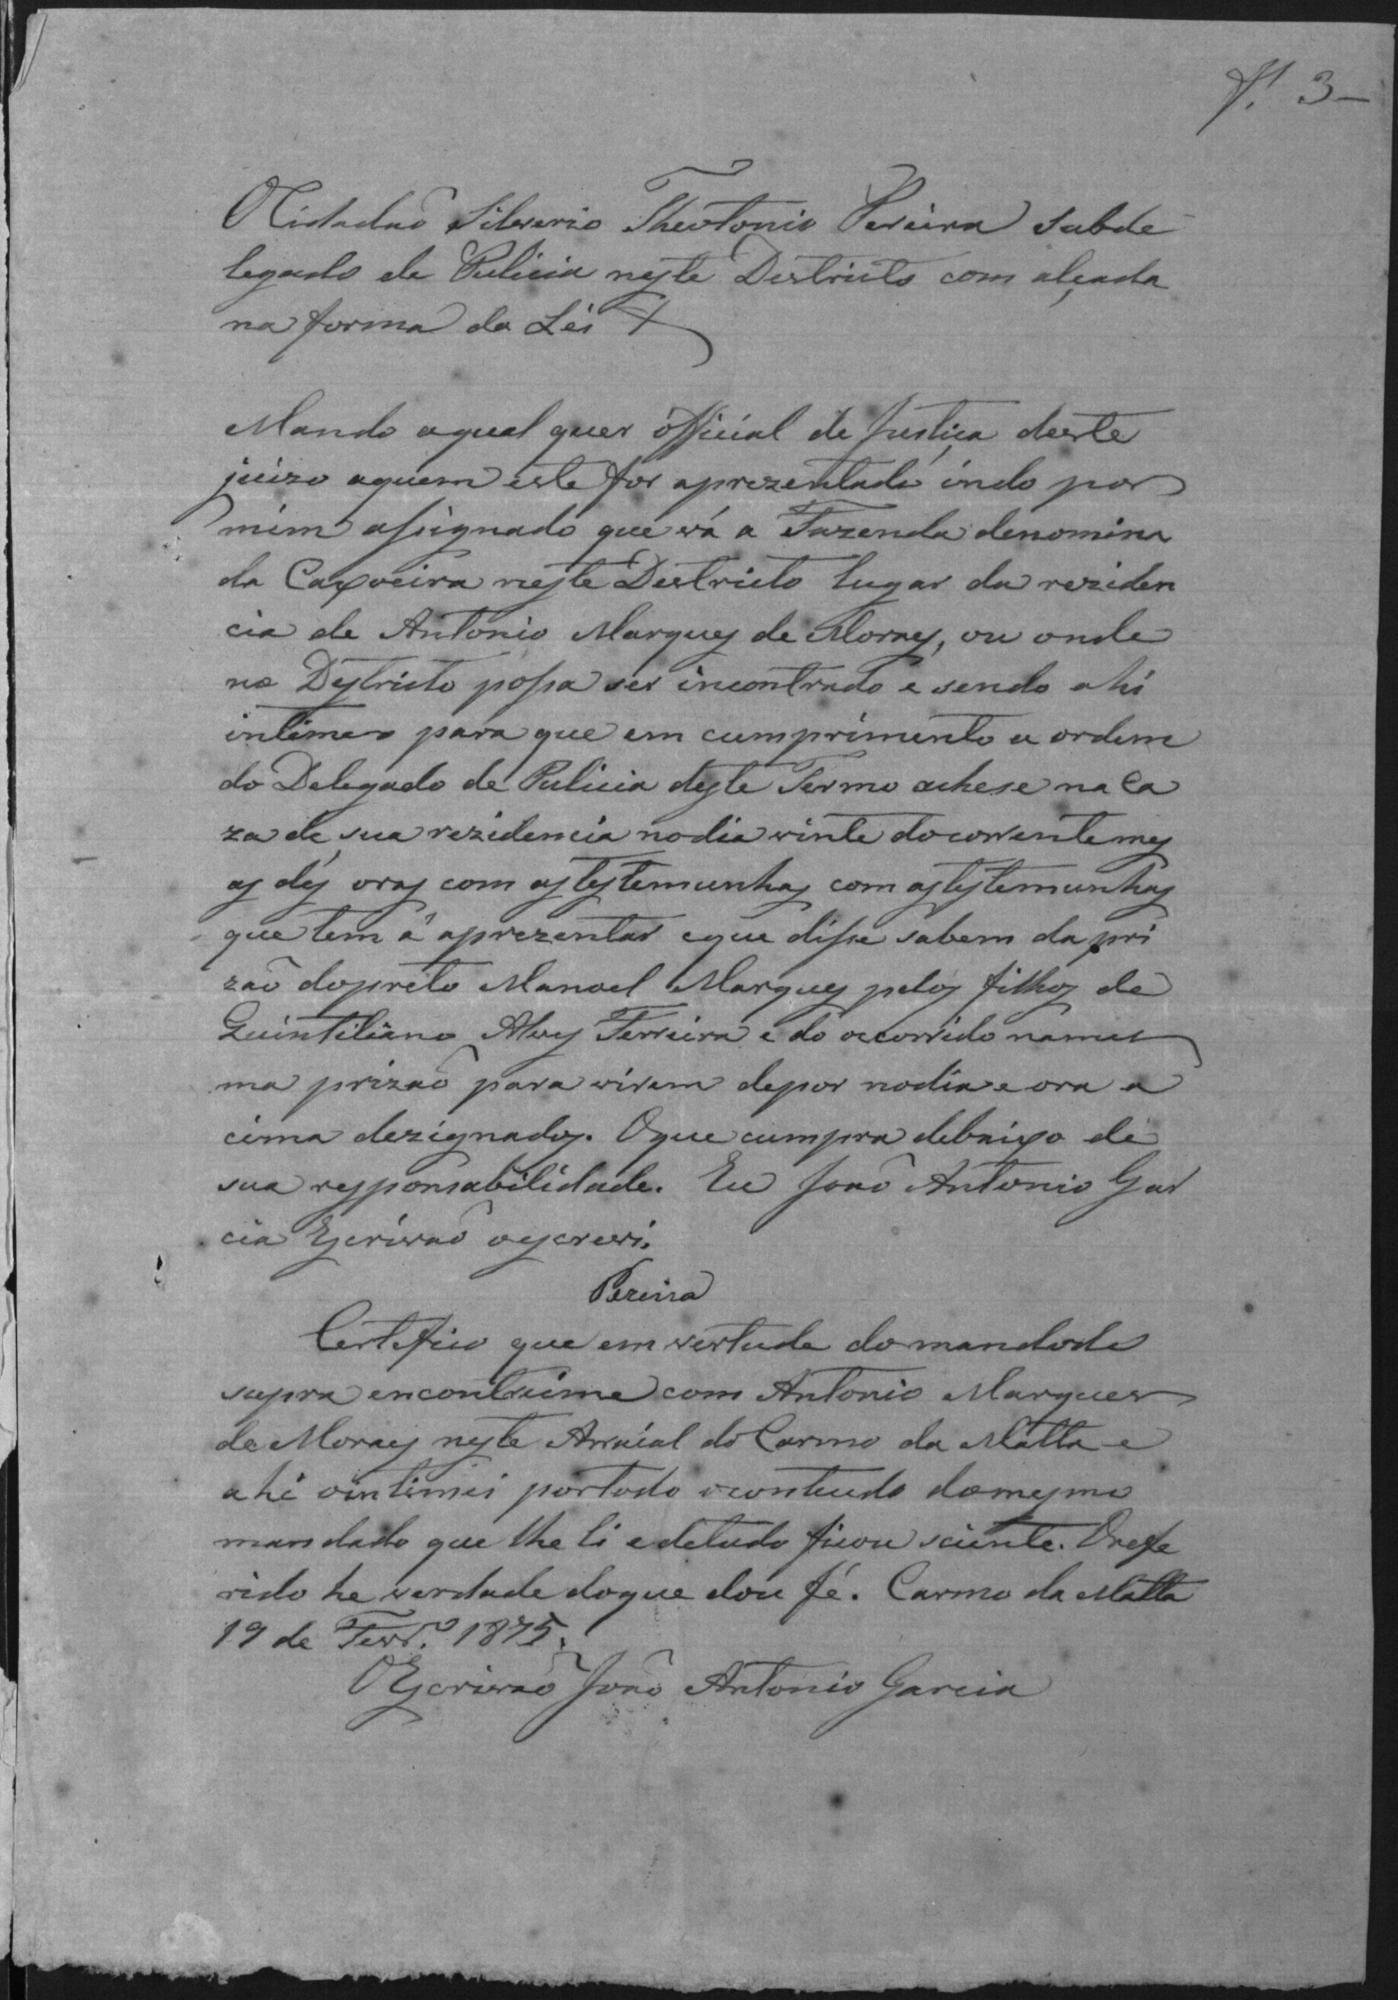 f. 3
O Cidadaõ Silverio Theotonio Pereira subde
legado de Pulicia neste Destricto com alçada
na forma da Lei
Mando aqual quer official de Justiça deste
juizo aquem este for aprezentado indo por
mim assignado que vá a Fazenda denomina
da Caxoeira neste Destricto lugar da reziden
cia de Antonio Marques de Moraes, ou onde
no Destricto possa ser incontrado e sendo ahi
intime para que em cumprimento a ordem
do Delegado de Pulicia deste Termo achese na Ca
za de sua rezidencia nodia vinte docorrente mes
as dés oras com astestemunhas com astestemunhas
que tem á aprezentar eque disse sabem da pri
zaõ dopreto Manoel Marques pelos filhos de
Quintiliano Alves Ferreira e do occorrido names
ma prizaõ para virem depor nodia e ora a
cima dezignados. Oque cumpra debaixo de
sua responsabilidade. Eu Joaõ Antonio Gar
cia Escrivaõ oescrevi.
Pereira
Certefico que em vertude domandode
supra encontreime com Antonio Marques
de Moraes neste Arraial do Carmo da Matta e
ahi ointimei portodo oconteudo domesmo
mandado que lhe li edetudo ficou sciente. Orefe
rido he verdade doque dou fé. Carmo da Matta
19 de Fevr.º 1875.
OEscrivaõ Joaõ Antonio Garcia